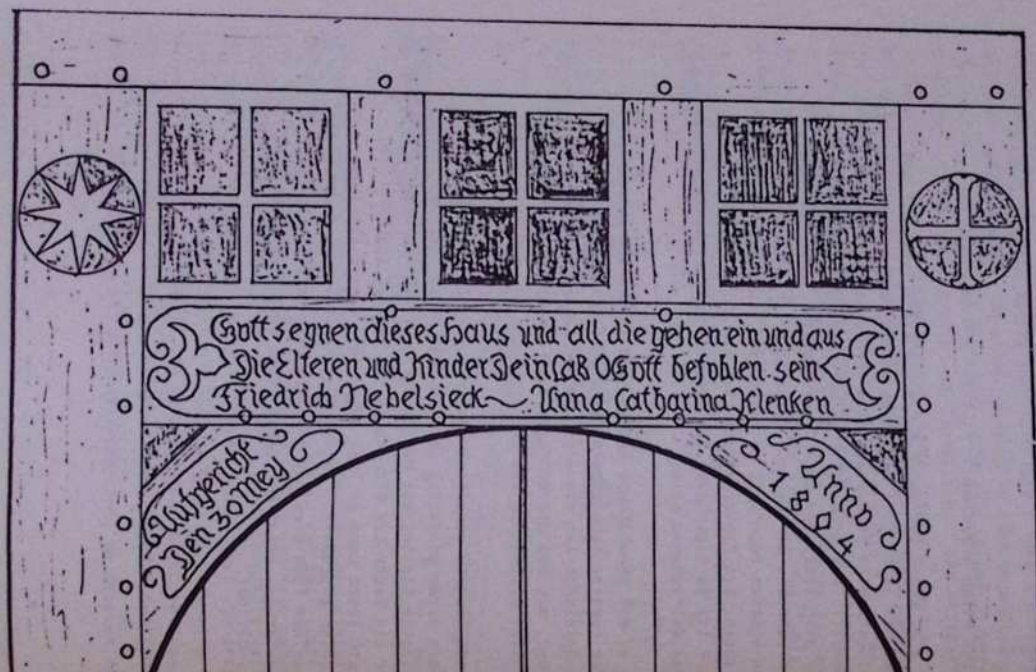 Gott segnen dieses Haus und all die gehen ein und aus
Die Elteren und Kinder Dein Laß O Gott befohlen sein
Friedrich Nebelsieck ~ Anna Catharina Klenken
Aufgericht
Den 30 Mey
Anno
1804